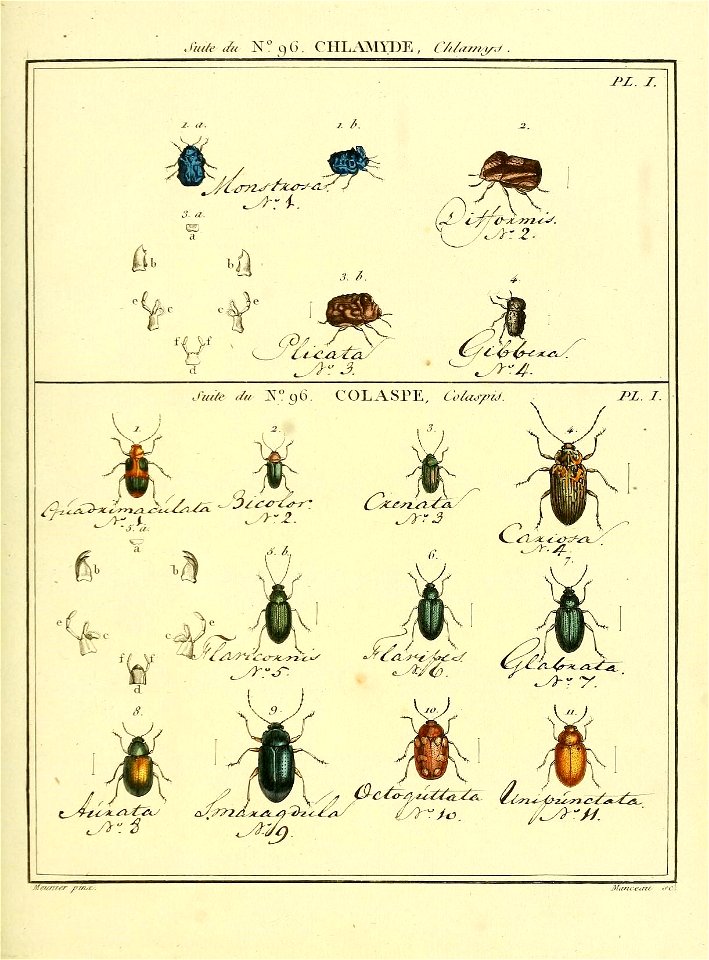 Suite du N.º 96. CHLAMYDE, Chlamys.
PL. I.
1. a.
1. b.
2.
Monstrosa.
Nº 1.
Difformis.
Nº 2.
3. a.
a
b
b
e
c
c
e
f
f
d
3. b.
4.
Plicata
Nº 3.
Gibbera.
Nº 4.
Suite du Nº 96. COLASPE, Colaspis.
PL. I.
1.
2.
3.
4.
Quadrimaculata
Nº 1
Bicolor.
Nº 2.
Crenata
Nº 3
Cariosa.
N. 4.
5. a.
a
b
b
e
c
c
e
f
f
d
5. b.
6.
7.
Flavicornis
Nº 5.
Flavipes
Nº 6.
Glabrata.
Nº 7.
8.
9.
10.
11.
Aurata
Nº 8
Smaragdula
Nº 9.
Octoguttata
Nº 10.
Unipunctata.
Nº 11.
Meunier pinx.
Manceau sc.